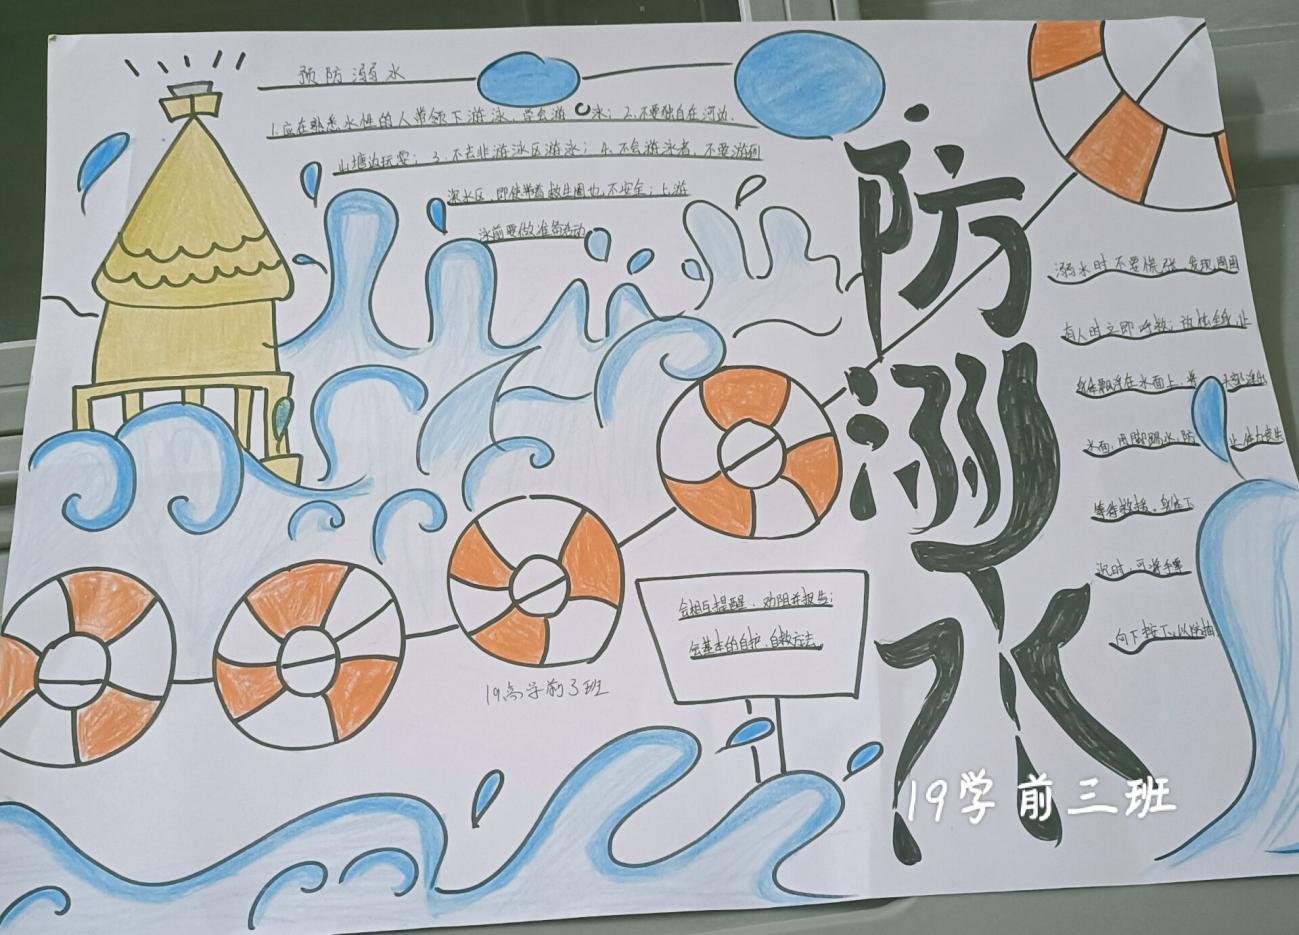 预防溺水
1.应在熟悉水性的人带领下游泳，学会游泳；2.不要独自在河边、
山塘边玩耍；3.不去非游泳区游泳；4.不会游泳者，不要游到
深水区，即使带着救生圈也不安全；5.游
泳前要做准备活动
防溺水
溺水时不要慌张，发现周围
有人时立即呼救；放松全身，让
身体飘浮在水面上，将头部浮出
水面，用脚踢水，防止体力丧失
等待救援，身体下
沉时，可将手掌
向下按下，以防抽
会相互提醒、劝阻并报告；
会基本的自护、自救方法。
19高学前3班
19学前三班